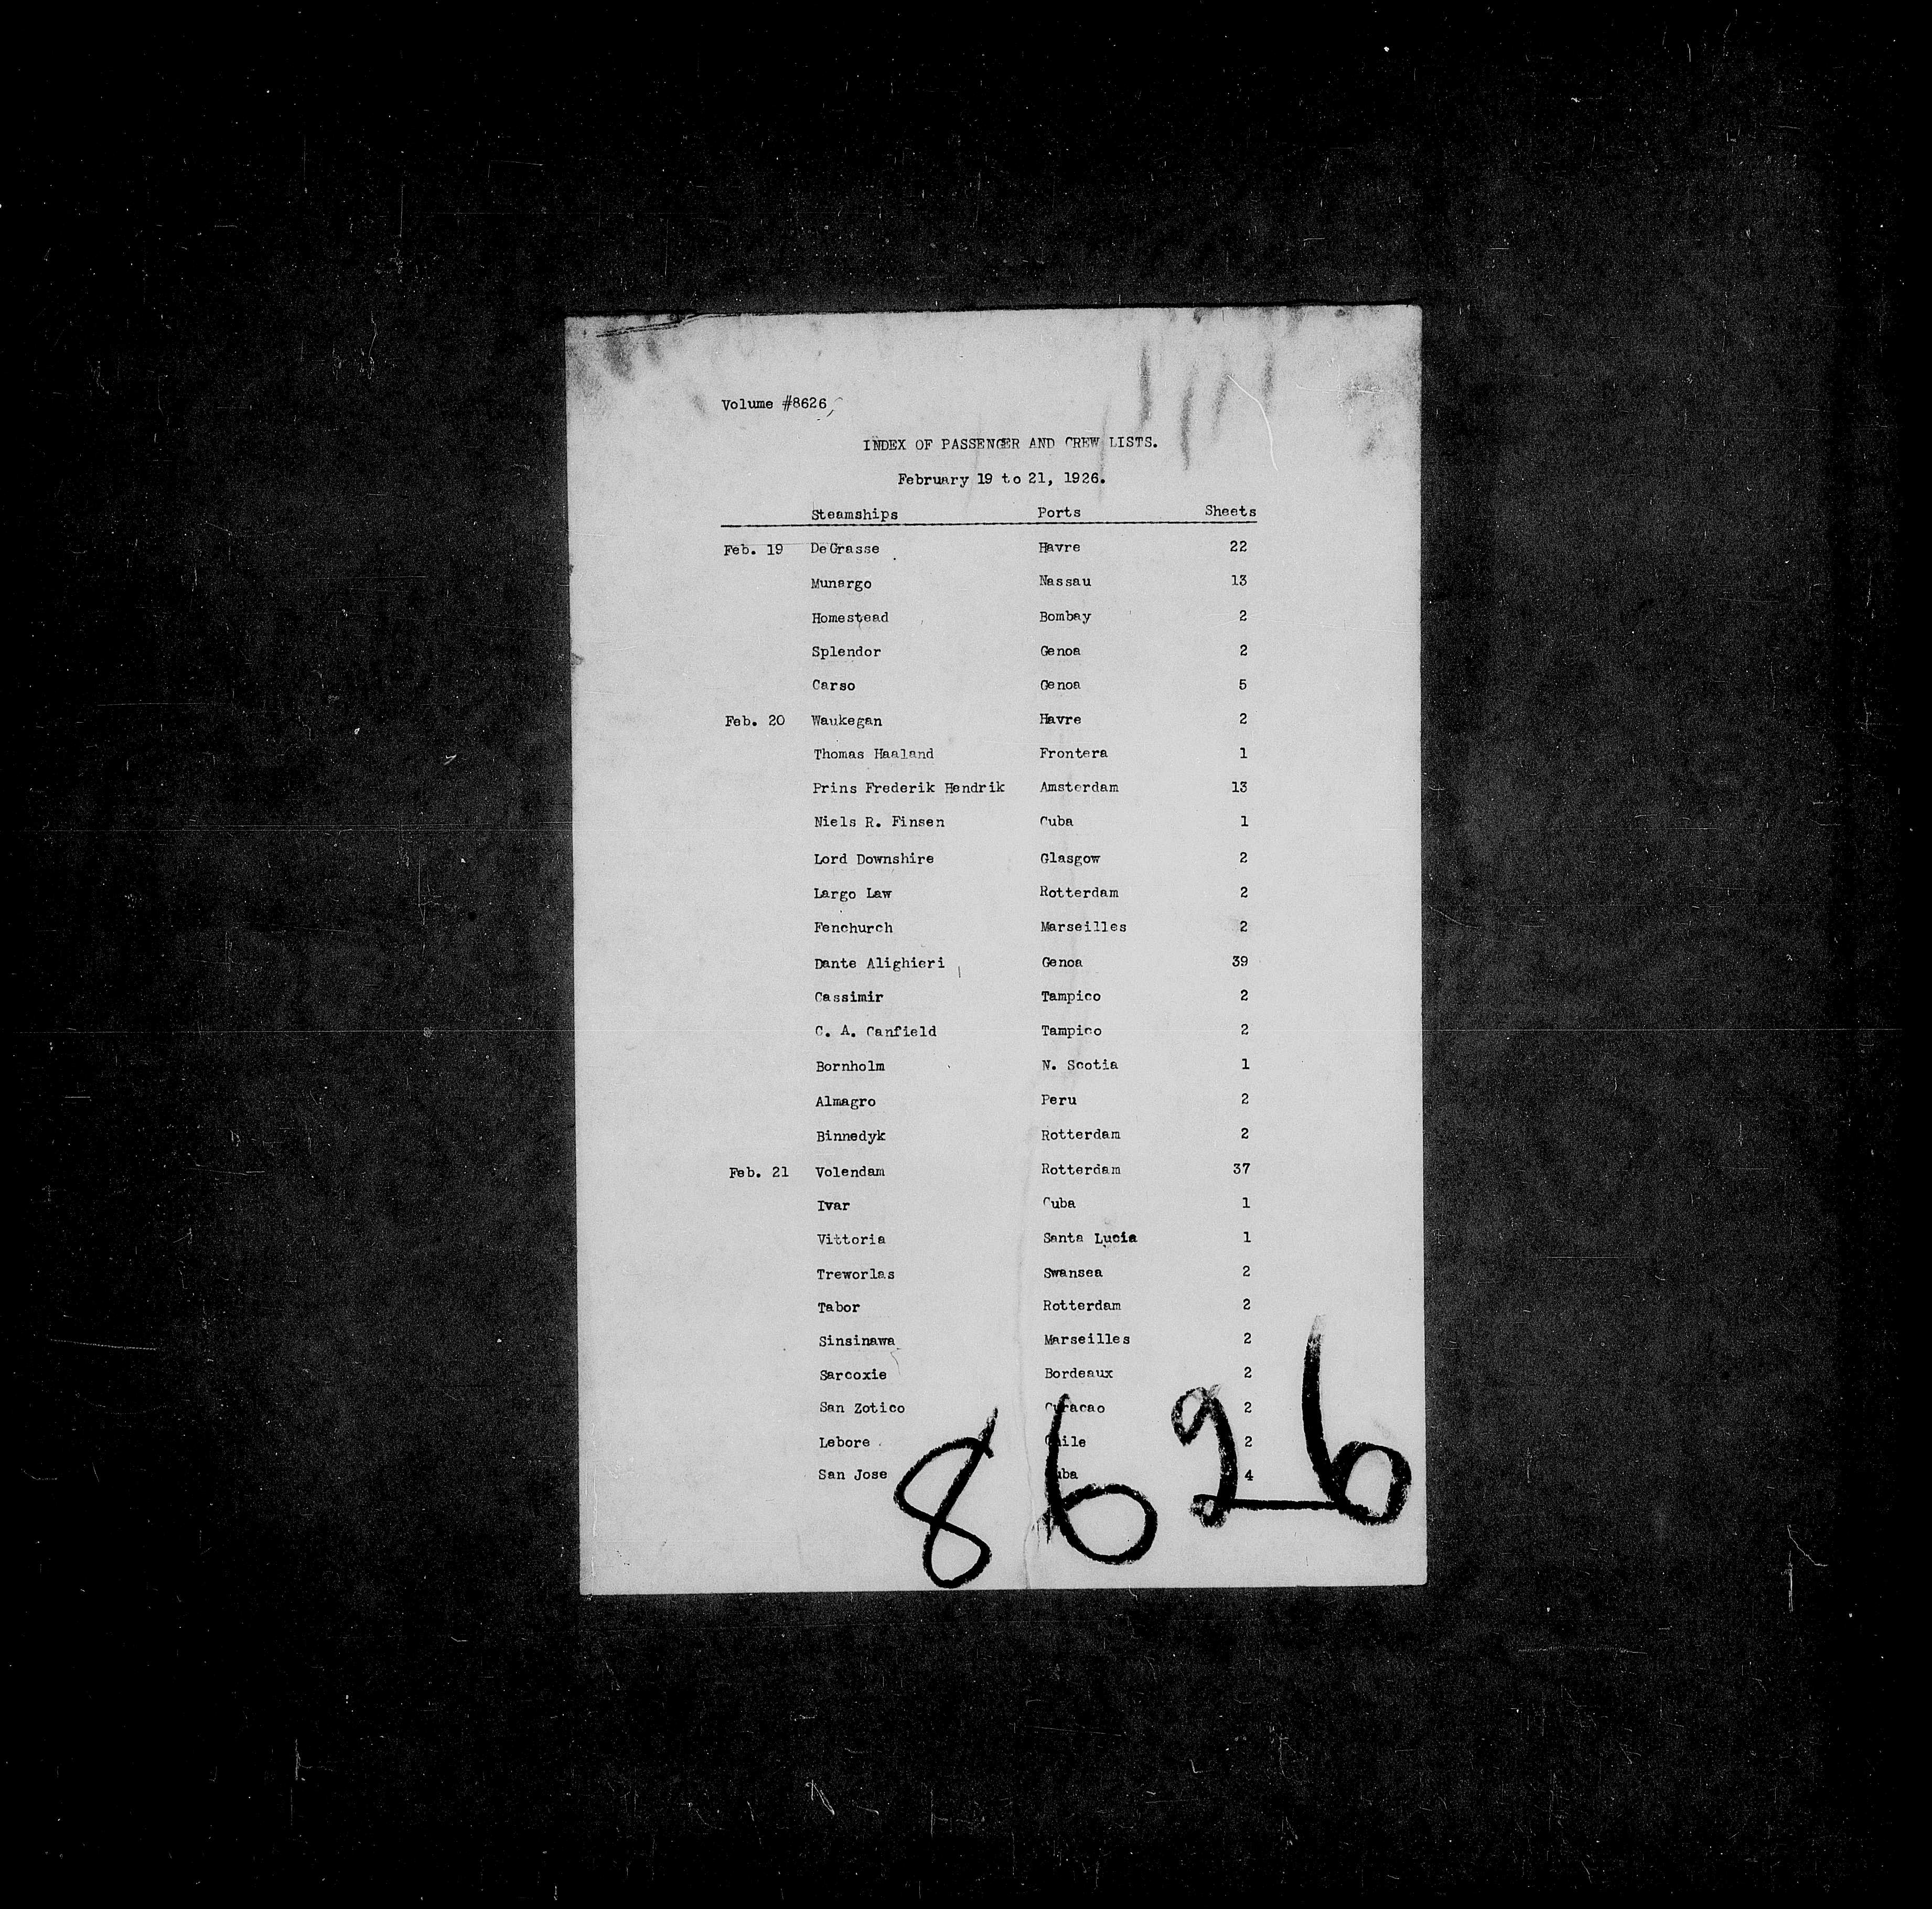 Volume #8626
INDEX OF PASSENGER AND CREW LISTS.
February 19 to 21, 1926.
Steamships Ports Sheets
Feb. 19 DeGrasse Havre 22
Munargo Nassau 13
Homestead Bombay 2
Splendor Genoa 2
Carso Genoa 5
Feb. 20 Waukegan Havre 2
Thomas Haaland Frontera 1
Prins Frederik Hendrik Amsterdam 13
Niels R. Finsen Cuba 1
Lord Downshire Glasgow 2
Largo Law Rotterdam 2
Fenchurch Marseilles 2
Dante Alighieri Genoa 39
Cassimir Tampico 2
C. A. Canfield Tampico 2
Bornholm N. Scotia 1
Almagro Peru 2
Binnedyk Rotterdam 2
Feb. 21 Volendam Rotterdam 37
Ivar Cuba 1
Vittoria Santa Lucia 1
Treworlas Swansea 2
Tabor Rotterdam 2
Sinsinawa Marseilles 2
Sarcoxie Bordeaux 2
San Zotico Curacao 2
Lebore Chile 2
San Jose Cuba 4
8626